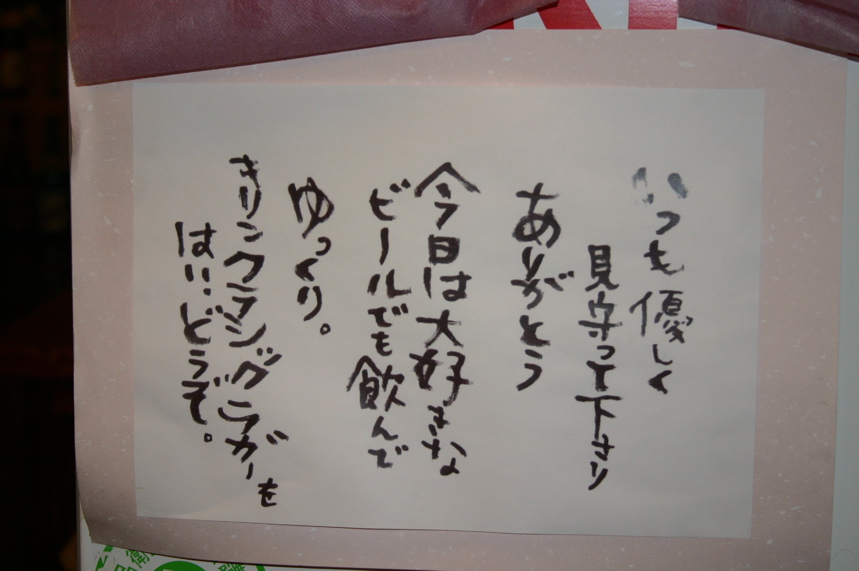 いつも優しく
見守って下さり
ありがとう
今日は大好きな
ビールでも飲んで
ゆっくり。
キリンクラシックラガーを
はい!どうぞ。